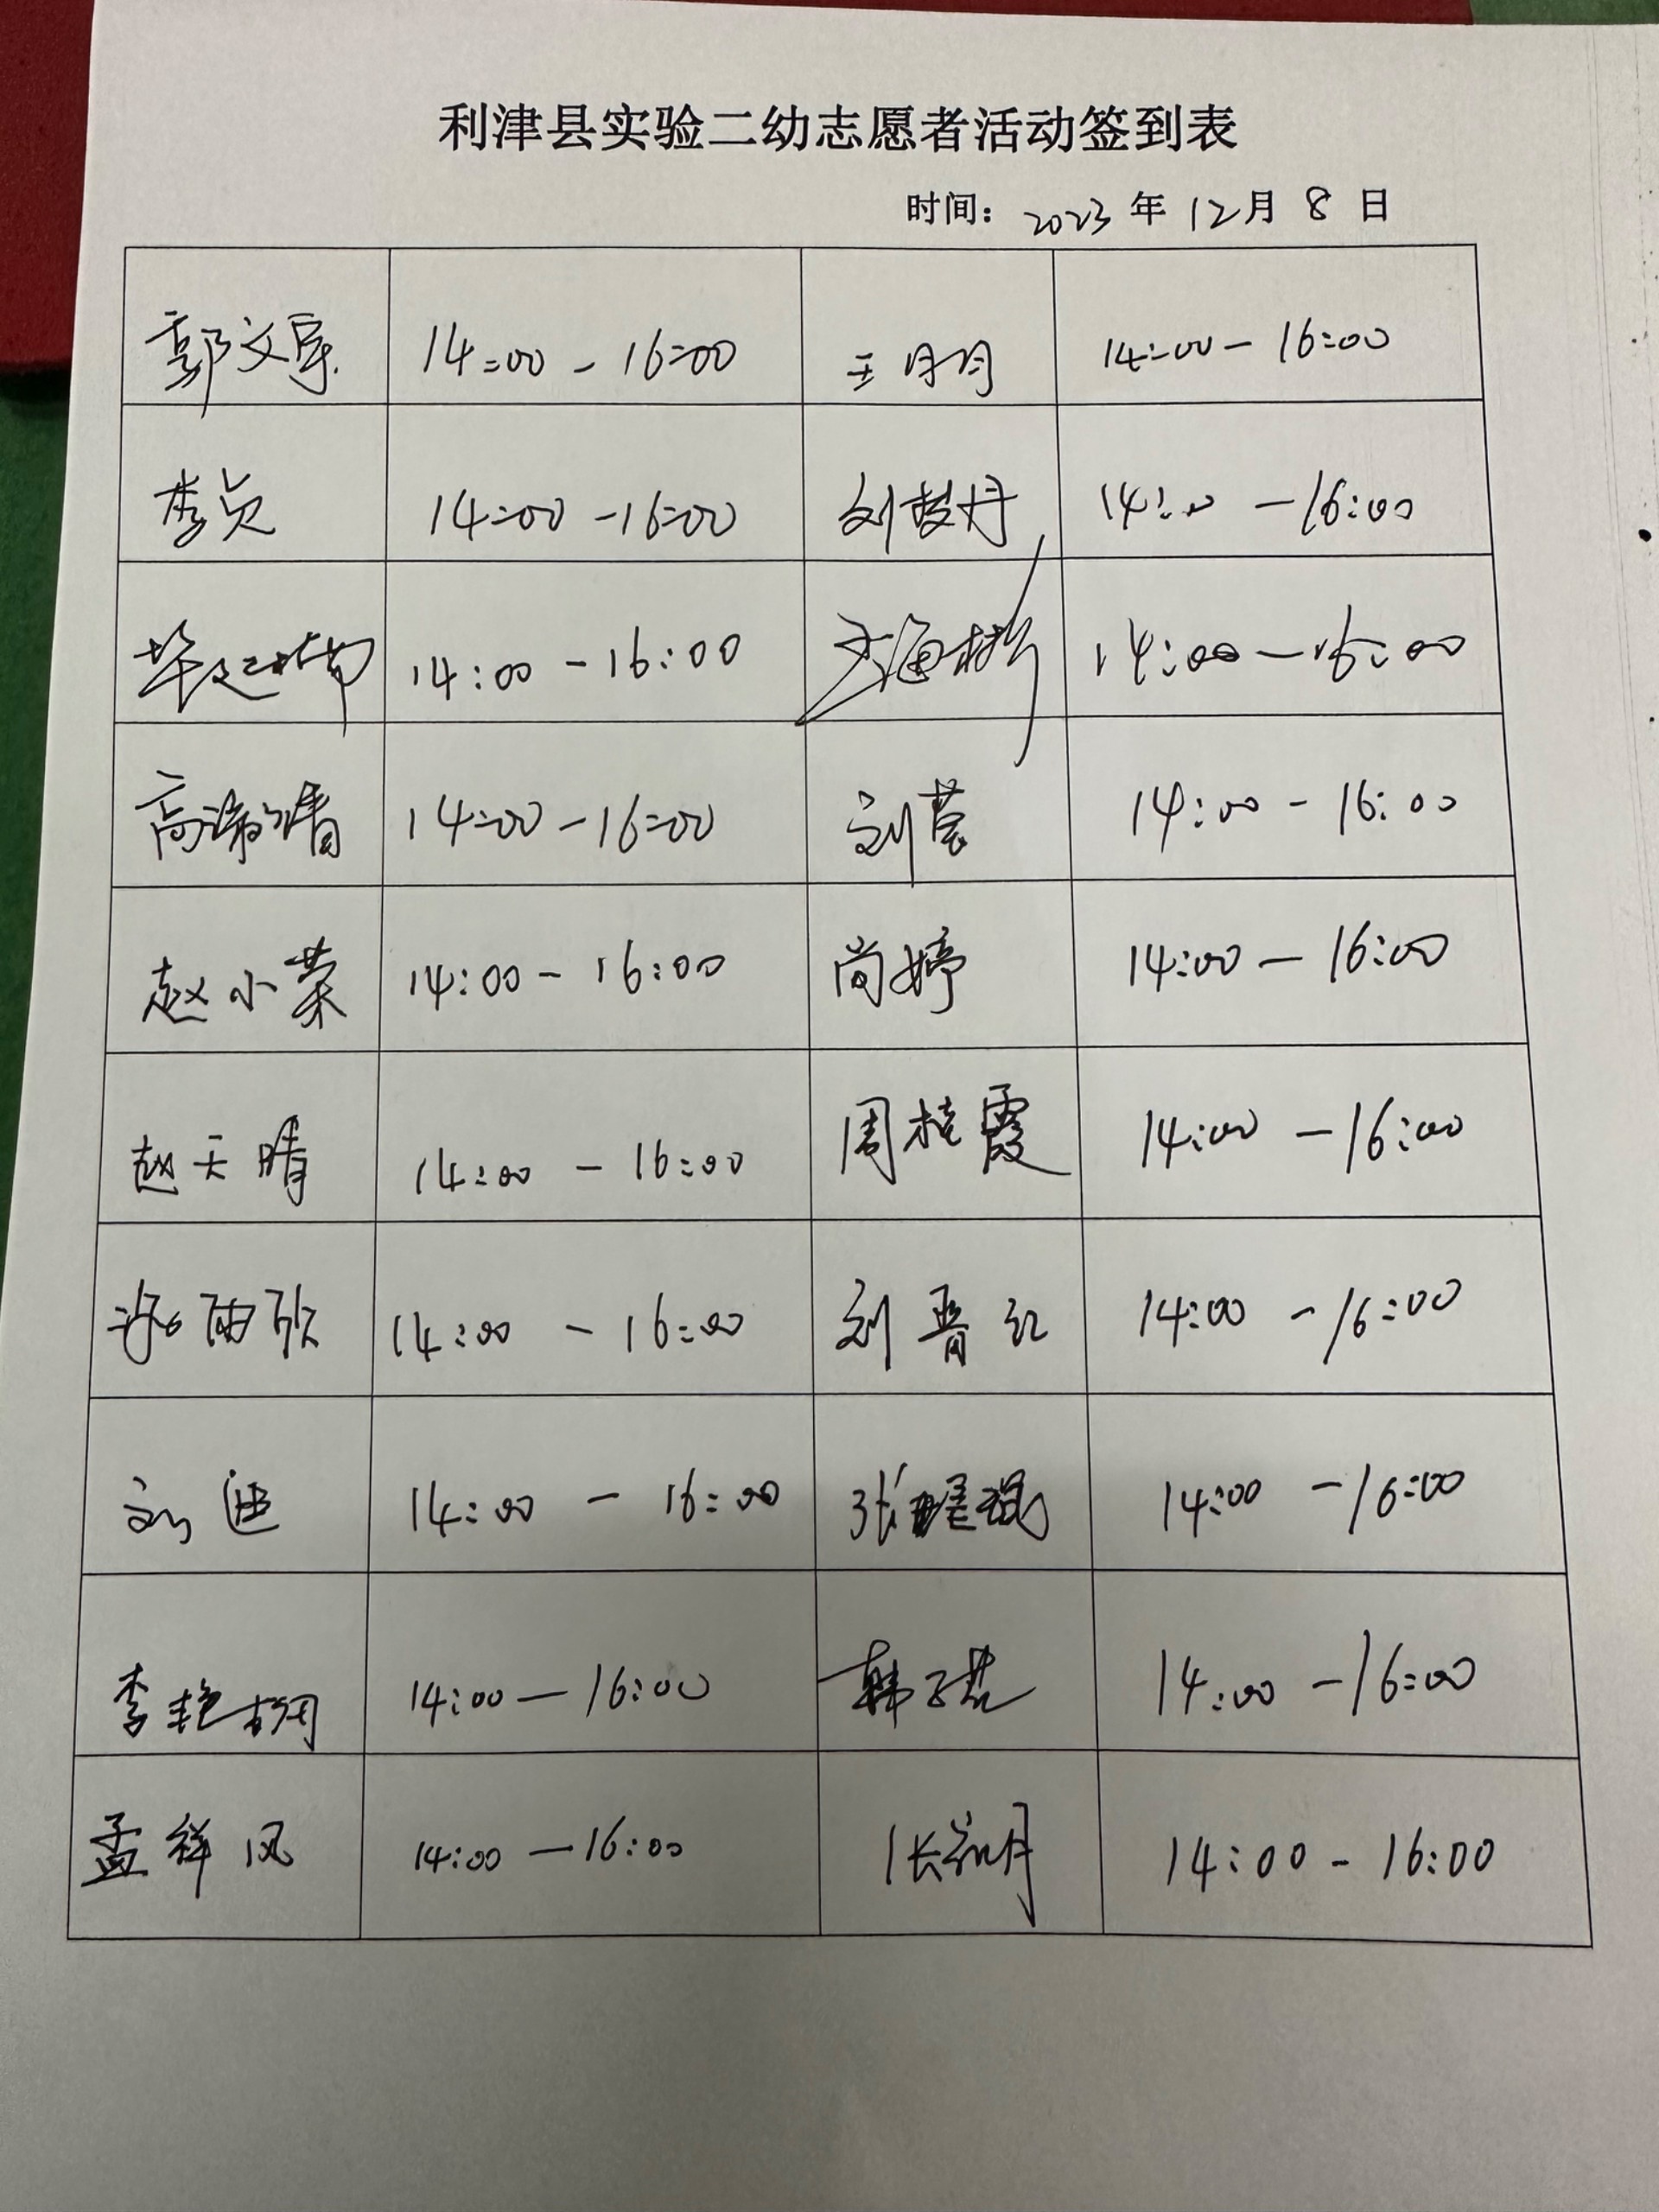 利津县实验二幼志愿者活动签到表
时间：2023年12月8日
郭文军 14:00-16:00 王月月 14:00-16:00
李贞 14:00-16:00 刘枝丹 14:00-16:00
14:00-16:00 14:00-16:00
高 14:00-16:00 刘 14:00-16:00
赵小荣 14:00-16:00 尚婷 14:00-16:00
赵天晴 14:00-16:00 周桂霞 14:00-16:00
张雨欣 14:00-16:00 刘晋红 14:00-16:00
刘迪 14:00-16:00 张 14:00-16:00
李艳 14:00-16:00 韩子 14:00-16:00
孟祥风 14:00-16:00 张 14:00-16:00